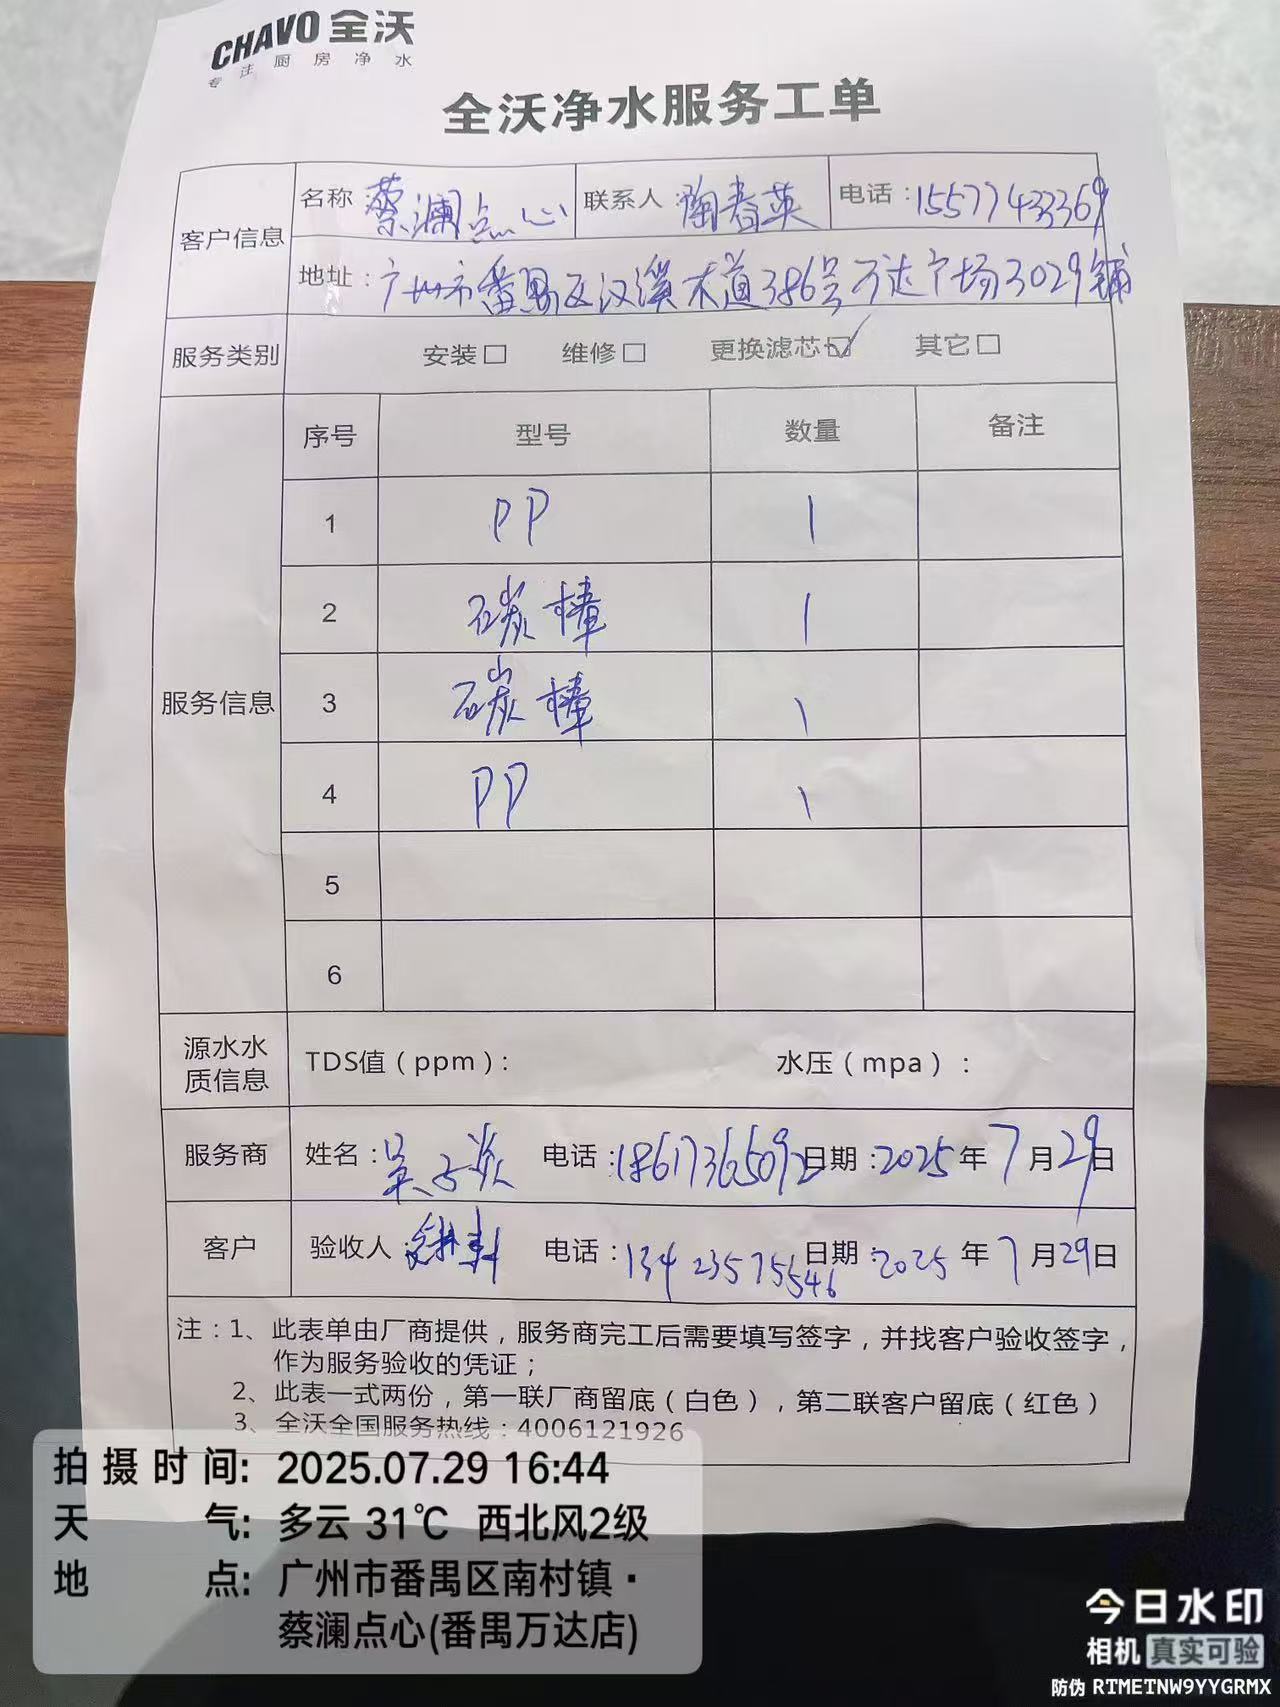 CHAVO 全沃
专注厨房净水
全沃净水服务工单
客户信息
名称:蔡澜点心 联系人:陶春英 电话:15577433369
地址:广州市番禺区汉溪大道386号万达广场3029铺
服务类别 安装□ 维修□ 更换滤芯☑ 其它□
服务信息
序号 型号 数量 备注
1 PP 1
2 碳棒 1
3 碳棒 1
4 PP 1
5
6
源水水质信息 TDS值(ppm): 水压(mpa):
服务商 姓名:吴子炎 电话:18617365092 日期:2025年7月29日
客户 验收人: 电话:13423575546 日期:2025年7月29日
注:1、此表单由厂商提供,服务商完工后需要填写签字,并找客户验收签字,
作为服务验收的凭证;
2、此表一式两份,第一联厂商留底(白色),第二联客户留底(红色)
3、全沃全国服务热线:4006121926
拍摄时间: 2025.07.29 16:44
天气: 多云 31℃ 西北风2级
地点: 广州市番禺区南村镇·
蔡澜点心(番禺万达店)
今日水印
相机 真实可验
防伪 RTMETNW9YYGRMX